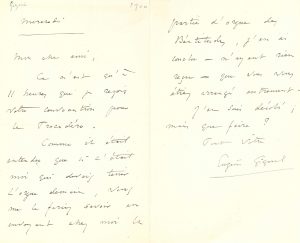 Gigout
1900
mercredi
Mon cher ami,
Ce n'est qu'à
11 heures que je reçois
votre convocation pour
le Trocadéro.
Comme il était
entendu que si c'était
moi qui devais tenir
l'orgue demain, vous
me le feriez savoir en
envoyant chez moi la
partie d'orgue des
Béatitudes, j'en ai
conclu — n'ayant rien
reçu — que vous vous
étiez arrangé autrement.
J'en suis désolé,
mais que faire ?
Tout vôtre
Eugène Gigout